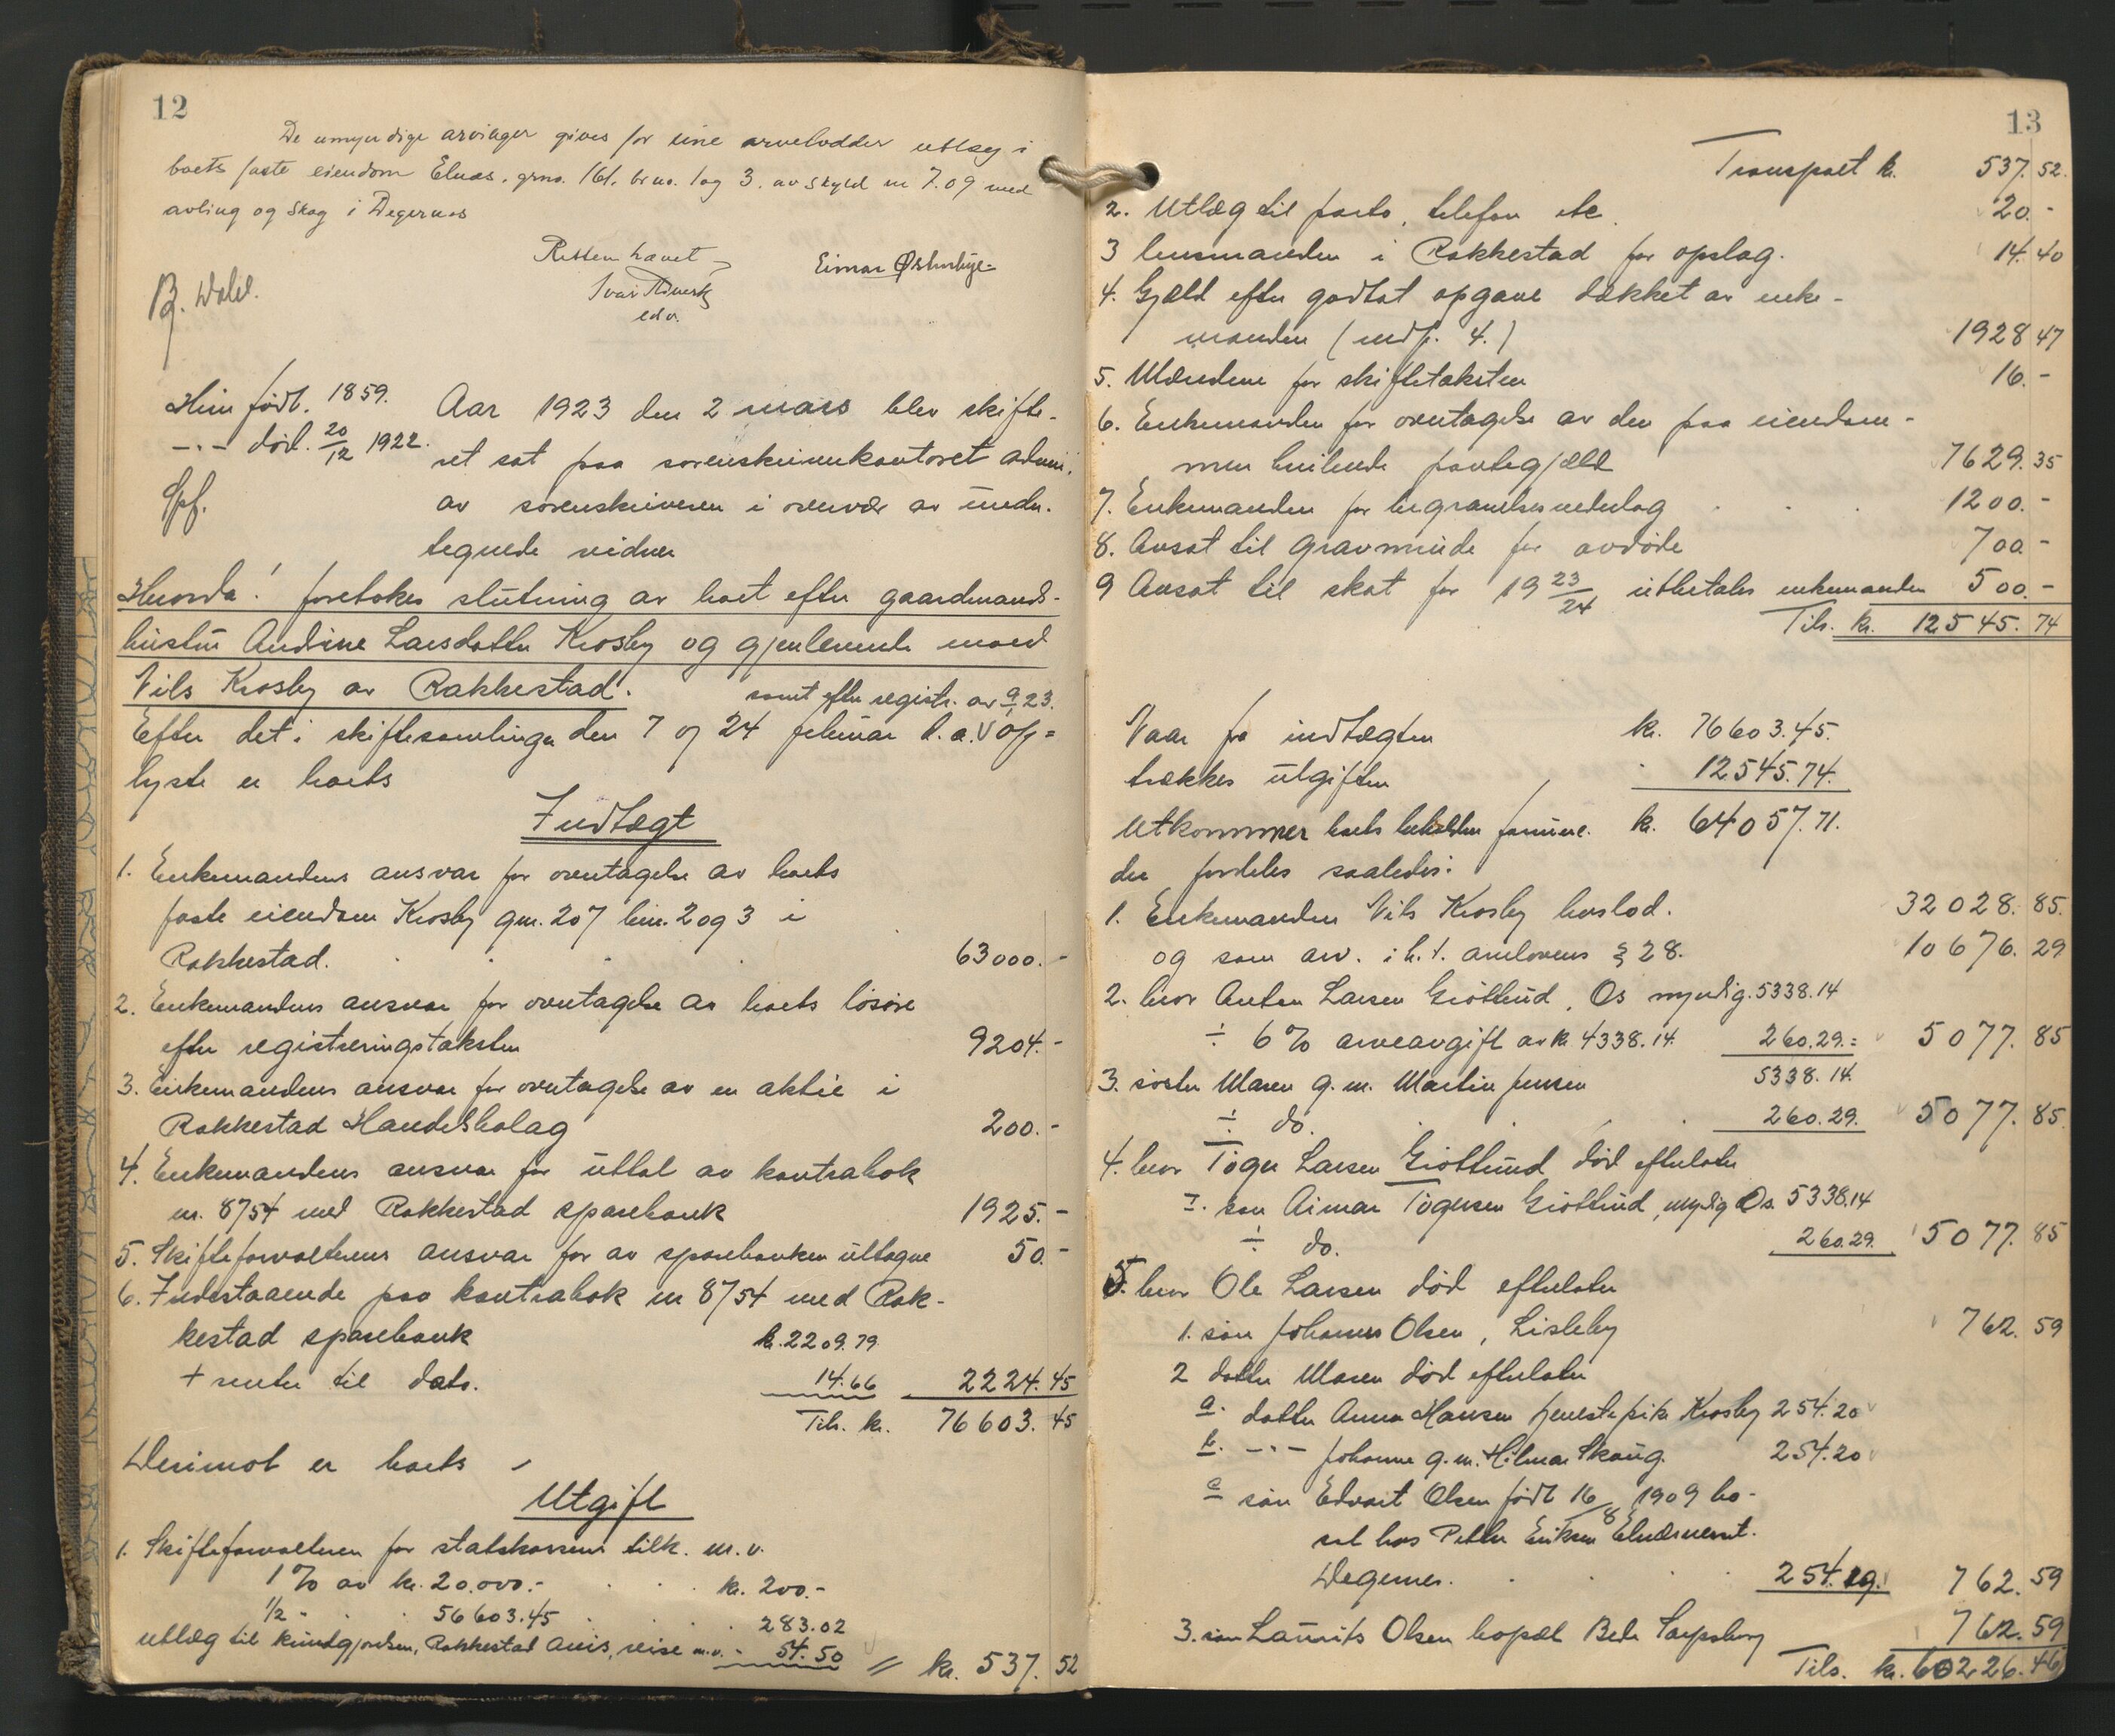 12
De umyndige arvinger gives for sine arvelodder utlæg i
boets faste eiendom Elnæs. grno. 161. brno. 1 og 3. av skyld m 7.09 med
avling og skog i Degernes
Retten hævet
Einar Østenbye
edv.
Hun født. 1859.
-"- død. 20/12 1922.
Aar 1923 den 2 mars blev skifte-
ret sat paa sorenskriverkontoret adm.
av sorenskriveren i overvær av under-
tegnede vidner
Hvorda! foretokes slutning av boet efter gaardmands-
hustru Andrine Larsdatter Krosby og gjenlevende mand
Nils Krosby av Rakkestad.
samt efter registr. av 9/1 23.
Efter det i skiftesamlinger den 7 og 24 februar d.a. V op-
lyste er boets
Indtægt
1. Enkemandens ansvar for overtagelse av boets
faste eiendom Krosby gnr. 207 bnr. 2 og 3 i
Rakkestad. 63000.-
2. Enkemandens ansvar for overtagelse av boets løsøre
efter registreringstaksten 9204.-
3. Enkemandens ansvar for overtagelse av en aktie i
Rakkestad Handelsbolag 200.-
4. Enkemandens ansvar for uttat av kontrabok
nr. 8754 med Rakkestad sparebank 1925.-
5. Skifteforvalterens ansvar for av sparebanken uttagne 50.-
6. Indestaaende paa kontrabok nr 8754 med Rak-
kestad sparebank kr. 2209.79
+ renter til dato. 14.66 2224.45
Tils. kr. 76603.45
Derimot er boets
Utgift
1. Skifteforvalteren for statskassens tilk. m.v.
1% av kr. 20.000.- kr. 200.-
1/2 " 56603.45 283.02
utlæg til kundgjørelsen, Rakkestad Avis, reise m.v. - 54.50 = kr. 537.52
13
Transport kr. 537.52.
2. Utlæg til porto, telefon etc. 20.-
3 lensmanden i Rakkestad for opslag. 14.40
4. Gjæld efter godtat opgave dækket av enke-
manden (indf. 4.) 1928.47
5. Mændene for skiftetaksten 16.-
6. Enkemanden for overtagelse av den paa eiendom-
men hvilende pantegjæld 7629.35
7. Enkemanden for begravelsesutlæg 1200.-
8. Avsat til gravminde for avdøde 700.-
9 Avsat til skat for 19 23/24 utbetales enkemanden 500.-
Tils. kr. 12545.74
Naar fra indtægten kr. 76603.45.
trækkes utgiften 12545.74.
Utkommer boets beholdne formue. kr. 64057.71.
der fordeles saaledes:
1. Enkemanden Nils Krosby boslod. 32028.85.
og som arv. i h.t. arvelovens § 28. 10676.29
2. bror Anton Larsen Grøtlund, Os myndig. 5338.14
÷ 6% arveavgift av kr. 4338.14. 260.29.= 5077.85
3. søster Maren g.m. Martin Jensen 5338.14.
÷ do. 260.29. 5077.85.
4. bror Tøger Larsen Grøtlund død efterlater
1. søn Aimar Tøgersen Grøtlund, myndig Os. 5338.14
÷ do. 260.29. 5077.85
5. bror Ole Larsen død efterlater
1. søn Johannes Olsen, Lisleby 762.59
2 datter Maren død efterlater
a. datter Anna Hansen tjenestepike Krosby 254.20
b. -"- Johanne g.m. Hilmar Skaug. 254.20
c søn Edvart Olsen født 16/8 1909 bo-
sat hos Petter Eriksen
Degernes. 254.19. 762.59
3. søn Laurits Olsen bopæl Sarpsborg 762.59
Tils. kr. 60226.46